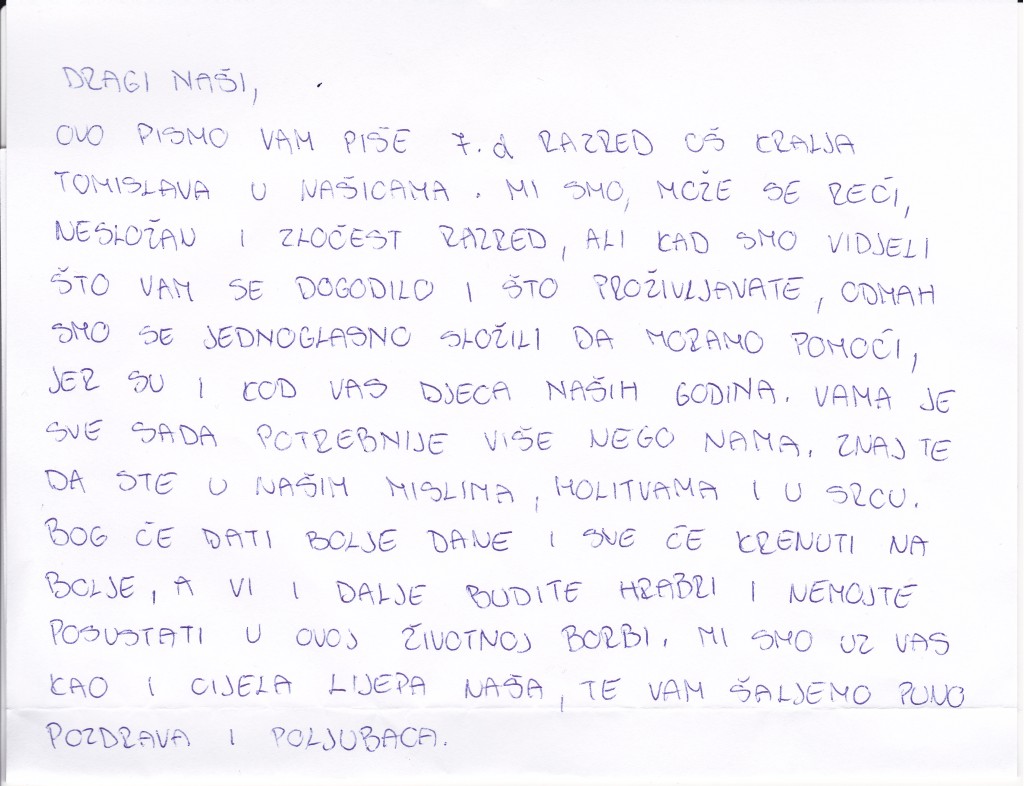 DRAGI NAŠI,
OVO PISMO VAM PIŠE 7. d RAZRED OŠ KRALJA
TOMISLAVA U NAŠICAMA. MI SMO, MOŽE SE REĆI,
NESLOŽAN I ZLOČEST RAZRED, ALI KAD SMO VIDJELI
ŠTO VAM SE DOGODILO I ŠTO PROŽIVLJAVATE, ODMAH
SMO SE JEDNOGLASNO SLOŽILI DA MORAMO POMOĆI,
JER SU I KOD VAS DJECA NAŠIH GODINA. VAMA JE
SVE SADA POTREBNIJE VIŠE NEGO NAMA. ZNAJTE
DA STE U NAŠIM MISLIMA, MOLITVAMA I U SRCU.
BOG ĆE DATI BOLJE DANE I SVE ĆE KRENUTI NA
BOLJE, A VI I DALJE BUDITE HRABRI I NEMOJTE
POSUSTATI U OVOJ ŽIVOTNOJ BORBI. MI SMO UZ VAS
KAO I CIJELA LIJEPA NAŠA, TE VAM ŠALJEMO PUNO
POZDRAVA I POLJUBACA.